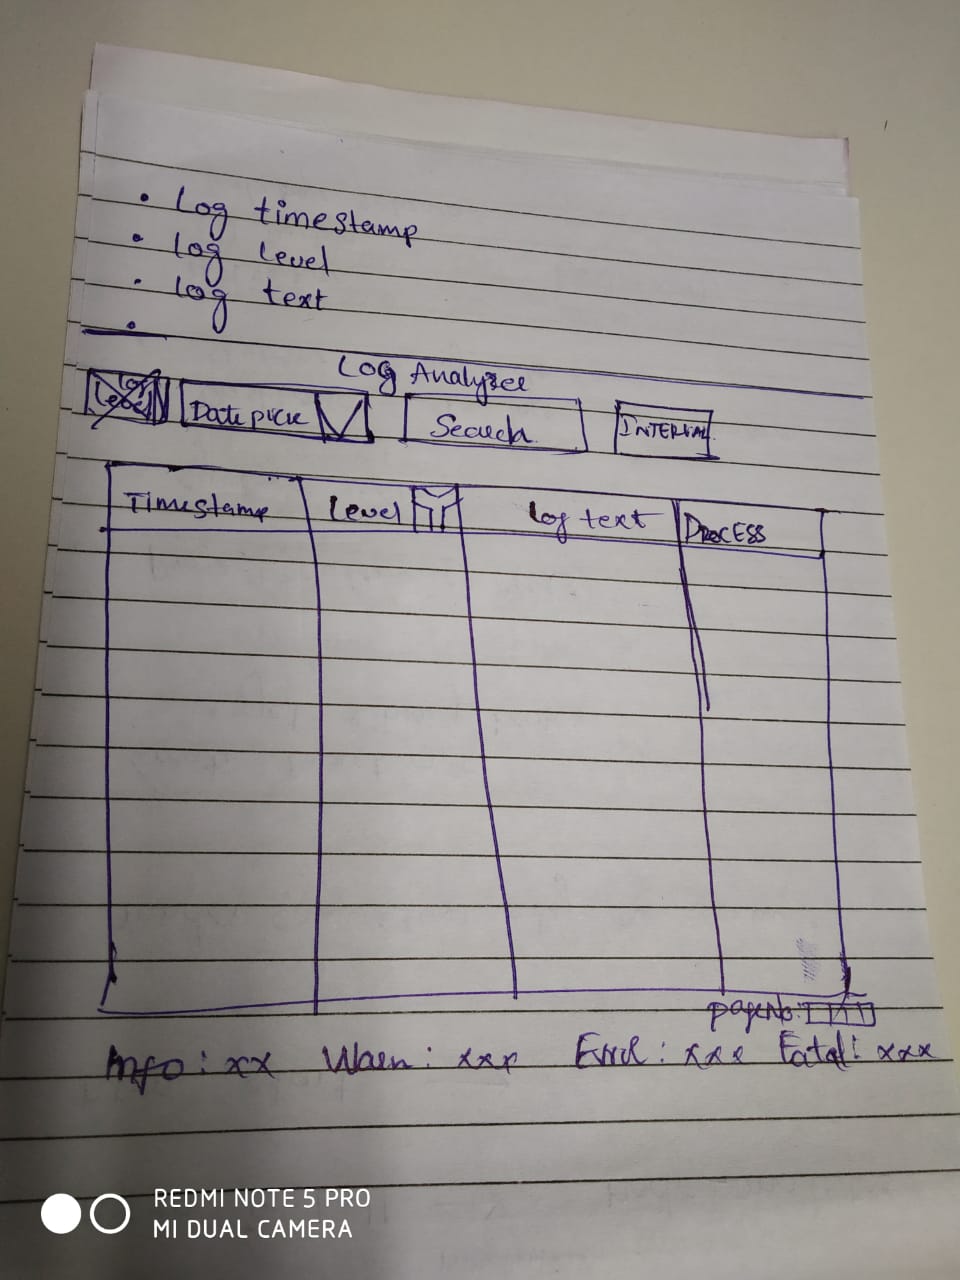 • Log timestamp
• Log Level
• Log text
•
Log Analyzer
Log Level
Date picke Search INTERVAL
Timestamp Level Log text PROCESS
pageNo:
Info : xx Warn : xxx Error : xxx Fatal : xxx
REDMI NOTE 5 PRO
MI DUAL CAMERA